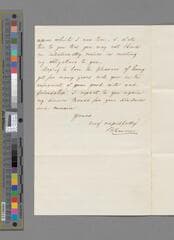 upon which I now live. I state
this to you that you may not think
me intentionally remiss in meeting
my obligations to you.
Hoping to have the pleasure of living
yet for many years with you in the
enjoyment of your good will and
friendship I repeat to you again
my sincere thanks for your kindness
and
Yours
very respectfully